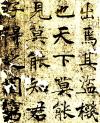 出焉其盗機
也天下莫能
見莫能知君
子得之固